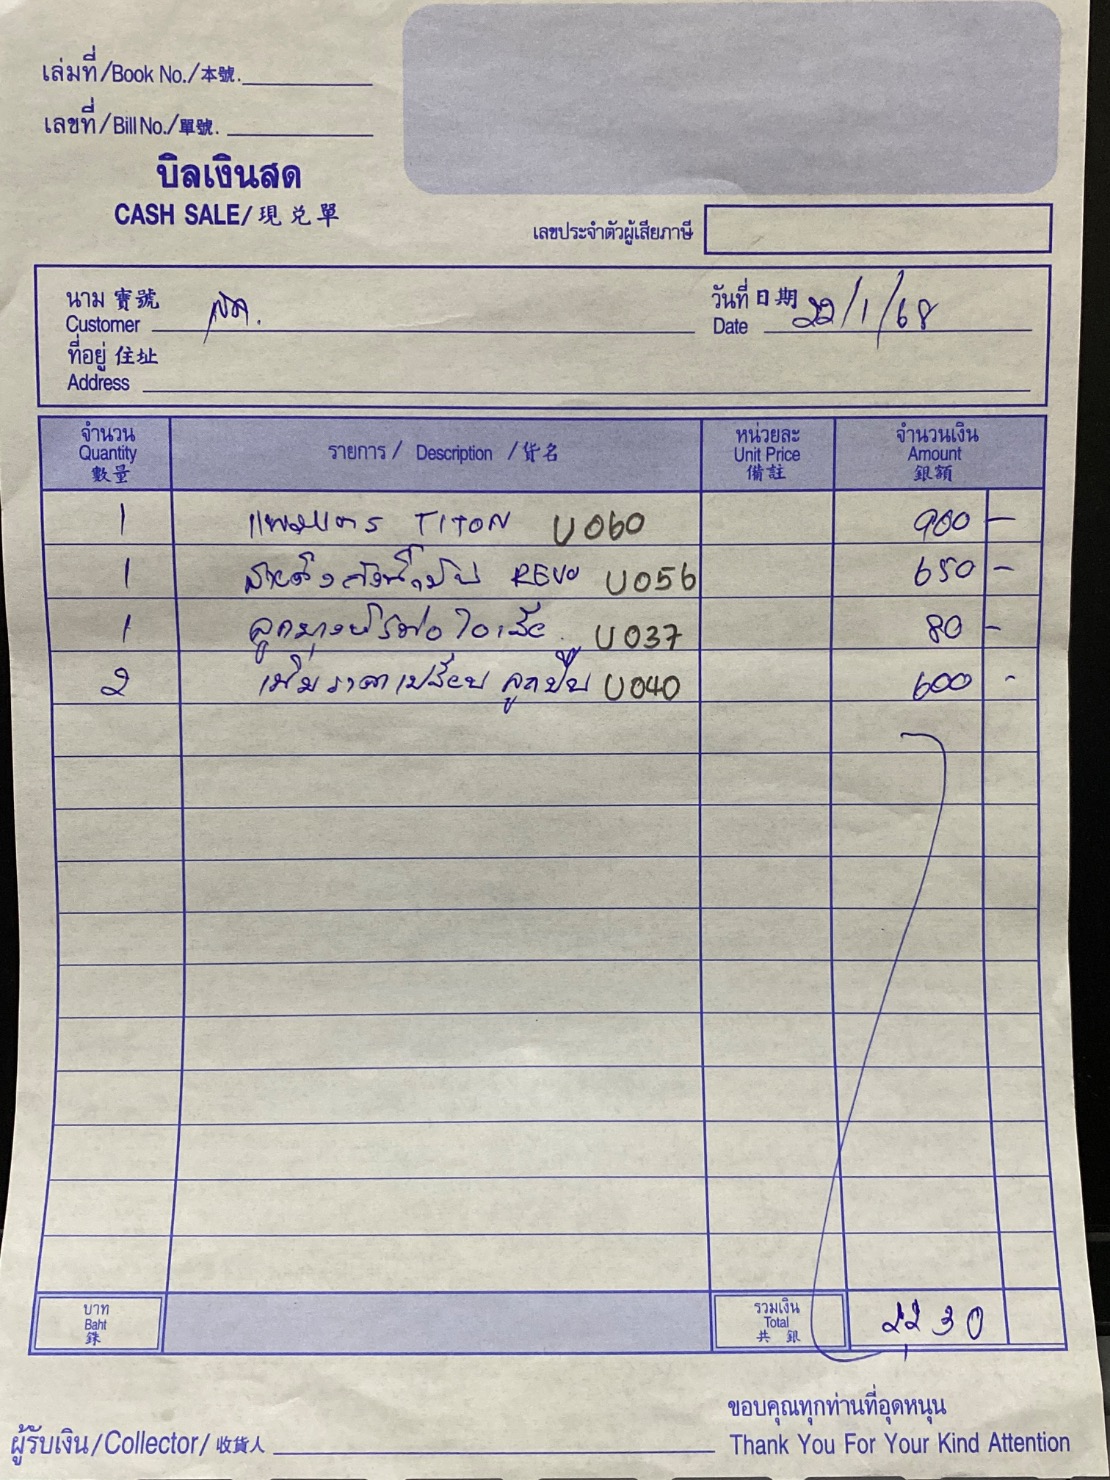 เล่มที่/Book No./本號.
เลขที่/Bill No./單號.
บิลเงินสด
CASH SALE/現兌單
เลขประจำตัวผู้เสียภาษี
นาม 寶號
Customer สด.
วันที่ 日期
Date 22/1/68
ที่อยู่ 住址
Address
จำนวน Quantity 數量
รายการ / Description / 貨名
หน่วยละ Unit Price 備註
จำนวนเงิน Amount 銀額
1 TITON U060 900 -
1 REVO U056 650 -
1 U037 80 -
2 เพิ่มราคาเปลี่ยน ลูกปืน U040 600 -
บาท Baht 銖
รวมเงิน Total 共銀 2230
ขอบคุณทุกท่านที่อุดหนุน
ผู้รับเงิน/Collector/收貨人
Thank You For Your Kind Attention